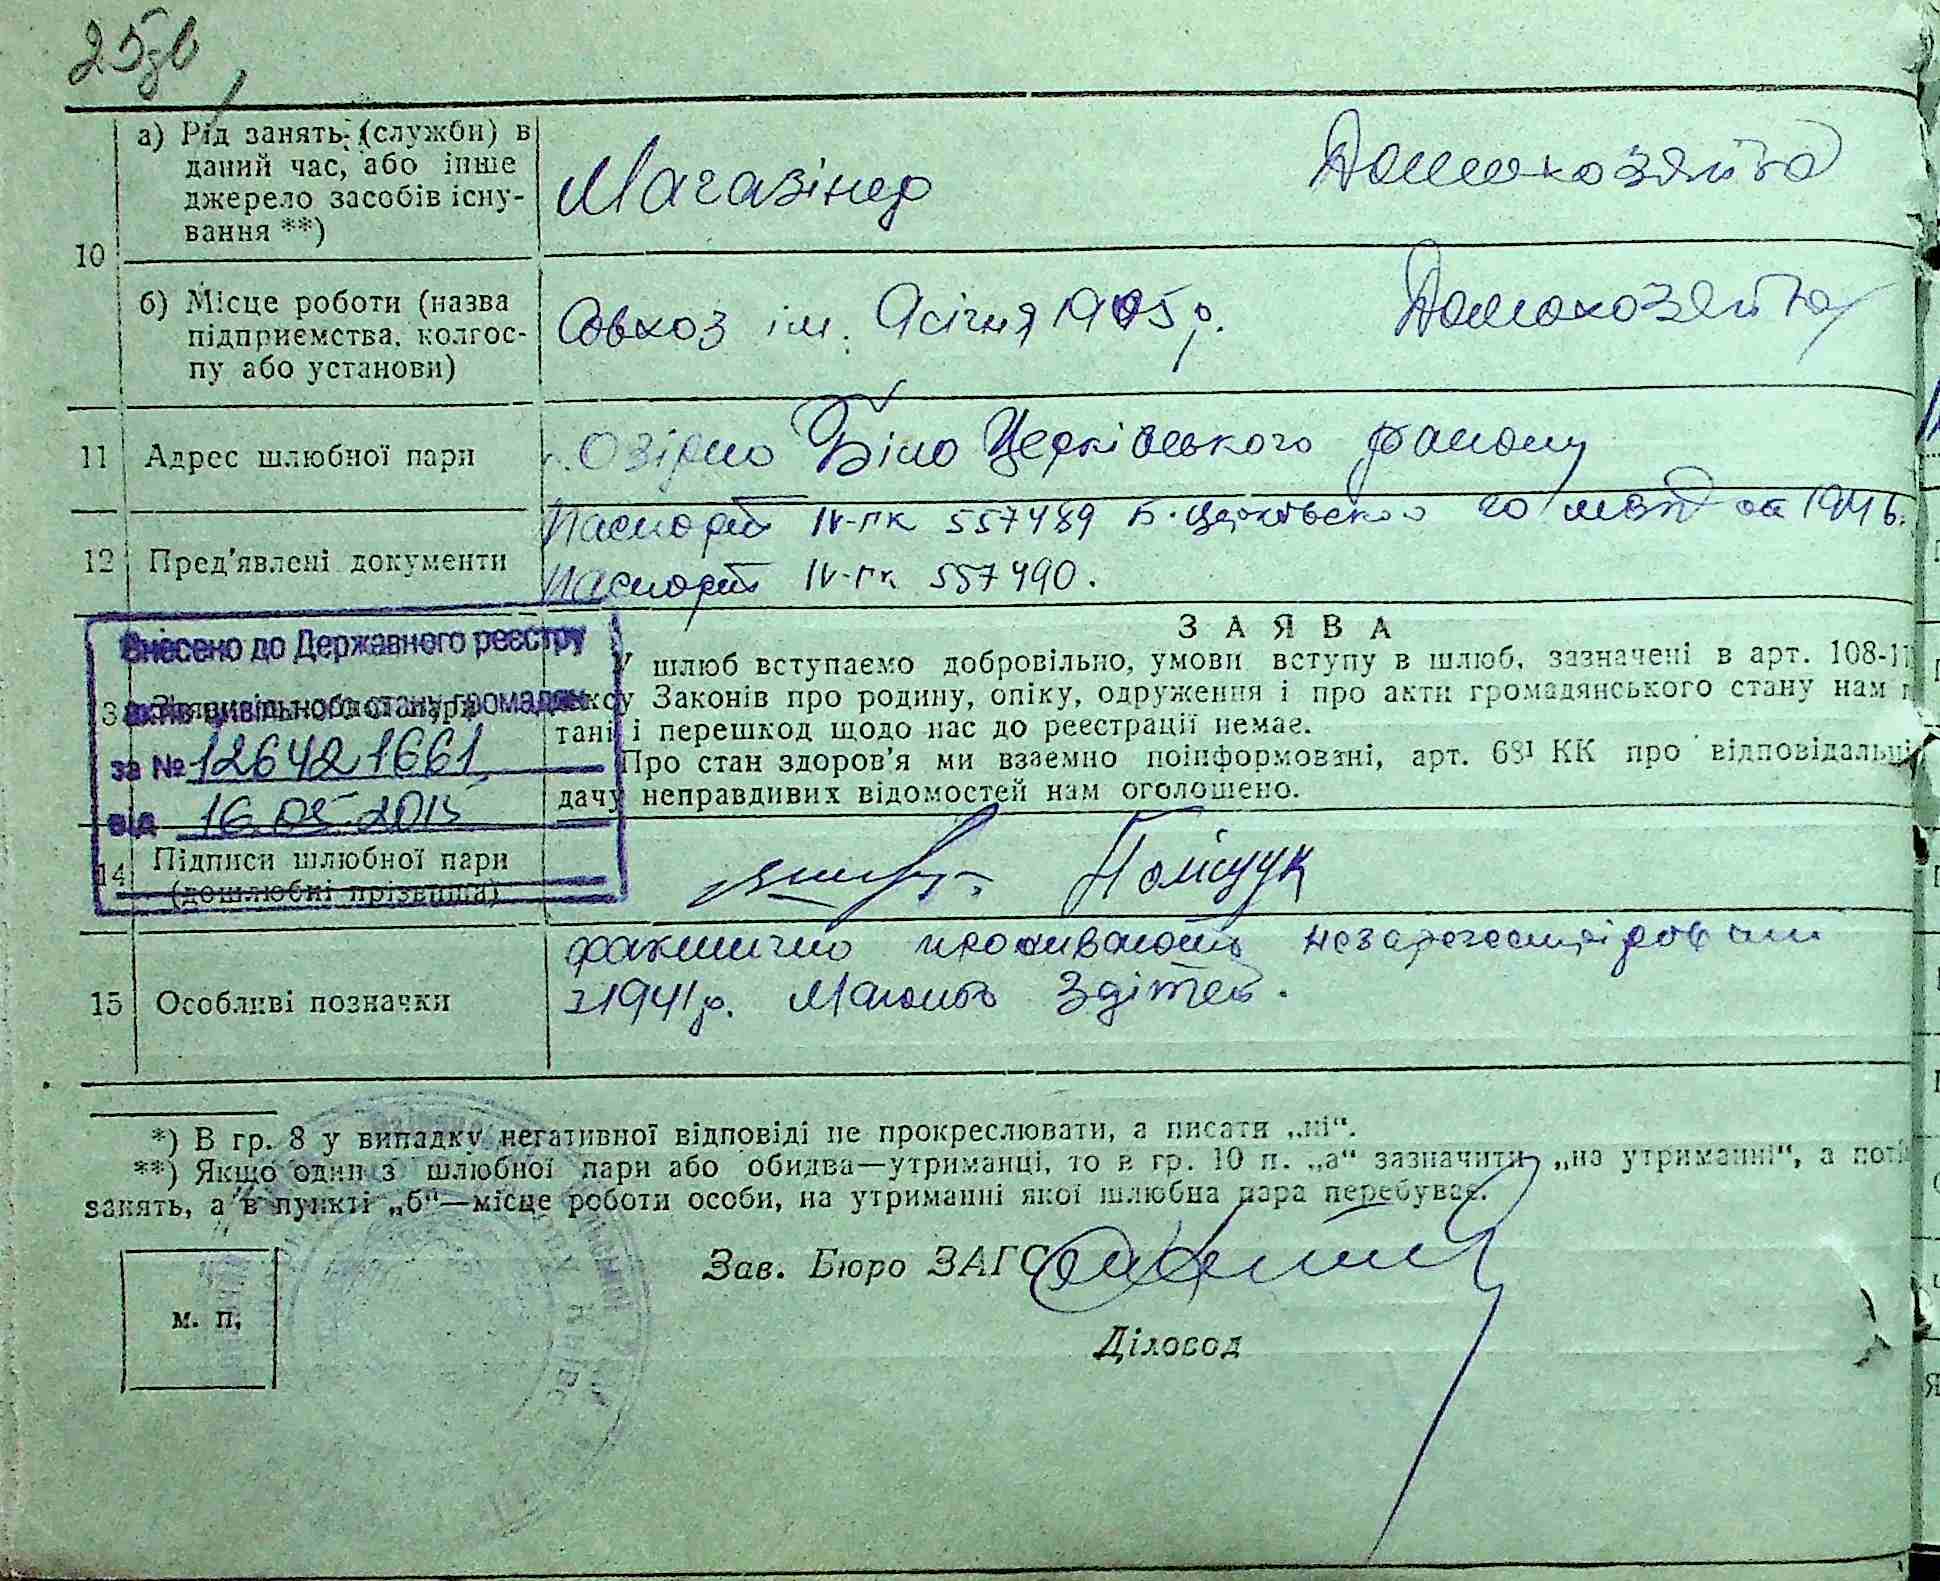 25зв
а) Рід занять (служби) в
даний час, або інше
джерело засобів існу-
вання **)
Магазінер Домохозяйка
10
б) Місце роботи (назва
підприємства, колгос-
пу або установи)
Совхоз ім. 9 січня 1905 р. Домохозяйка
11 Адрес шлюбної пари
Озірно Біло Церківського району
12 Пред'явлені документи
Паспорт IV-ГК 557489 Б. Церковского РО МВД 1946.
Паспорт IV-ГК 557490.
Внесено до Державного реєстру
актів цивільного стану громадян
за № 12642 1661
від 16.05.2015
ЗАЯВА
У шлюб вступаємо добровільно, умови вступу в шлюб, зазначені в арт. 108-11
ксу Законів про родину, опіку, одруження і про акти громадянського стану нам
тані і перешкод щодо нас до реєстрації немає.
Про стан здоров'я ми взаємно поінформовані, арт. 68¹ КК про відповідальні
дачу неправдивих відомостей нам оголошено.
14 Підписи шлюбної пари
(дошлюбні прізвища)
Поліщук
15 Особливі позначки
фактично проживають незарегестріровани
з 1941 р. Мають 3 дітей.
*) В гр. 8 у випадку негативної відповіді не прокреслювати, а писати „ні“.
**) Якщо один з шлюбної пари або обидва—утриманці, то в гр. 10 п. „а“ зазначити „на утриманні“, а поті
занять, а в пункті „б“—місце роботи особи, на утриманні якої шлюбна пара перебуває.
Зав. Бюро ЗАГС
м. п.
Діловод